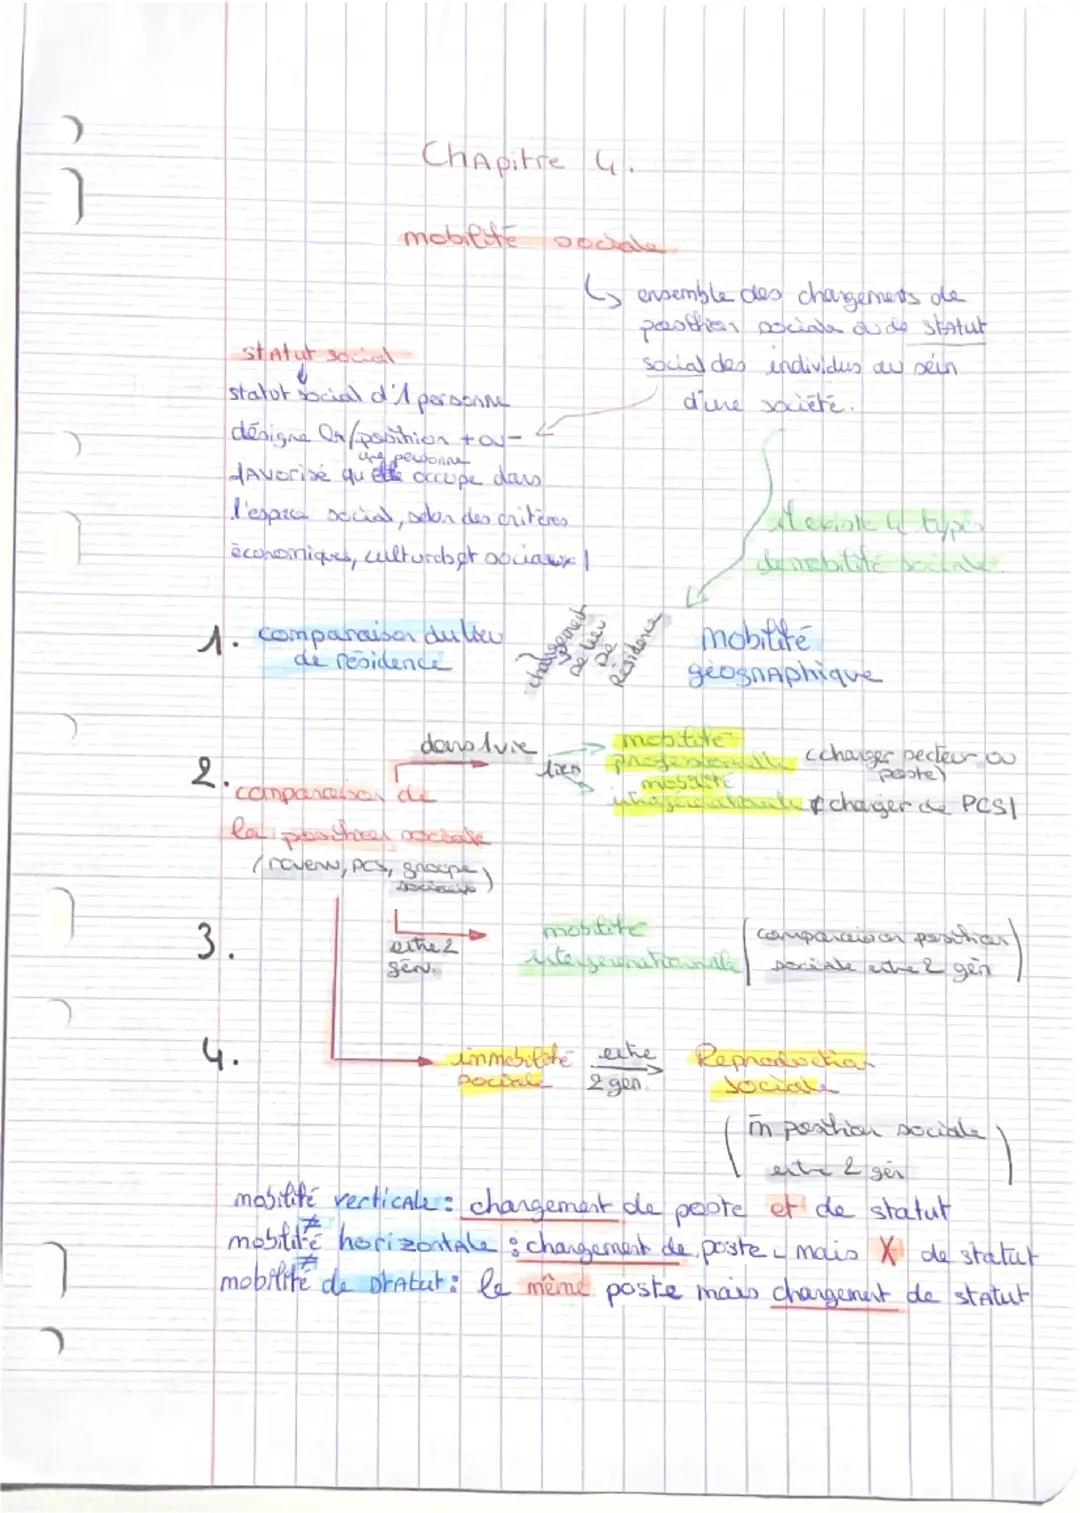 Chapitre 4.
mobilité sociale
↳ ensemble des changements de
position sociale ou de statut
social des individus au sein
d'une société.
statut social
statut social d'1 personne
désigne la position + ou -
favorisé qu'une personne occupe dans
l'espace social, selon des critères
économiques, culturels et sociaux
Il existe 4 types
de mobilité sociale
1. comparaison du lieu
de résidence
changement
de lieu
de
résidence
mobilité
géographique
2.
comparaison de
la position sociale
(revenu, PCS, groupe
sociaux)
dans 1 vie
lien
mobilité
professionnelle (changer secteur ou
poste)
mobilité
intragénérationnelle changer de PCS
3.
entre 2
gén.
mobilité
intergénérationnelle
(comparaison position
sociale entre 2 gén)
4.
immobilité
sociale
entre
2 gen.
Reproduction
sociale
(m̄ position sociale
entre 2 gén)
mobilité verticale : changement de poste et de statut
≠
mobilité horizontale : changement de poste mais X de statut
≠
mobilité de statut : le même poste mais changement de statut